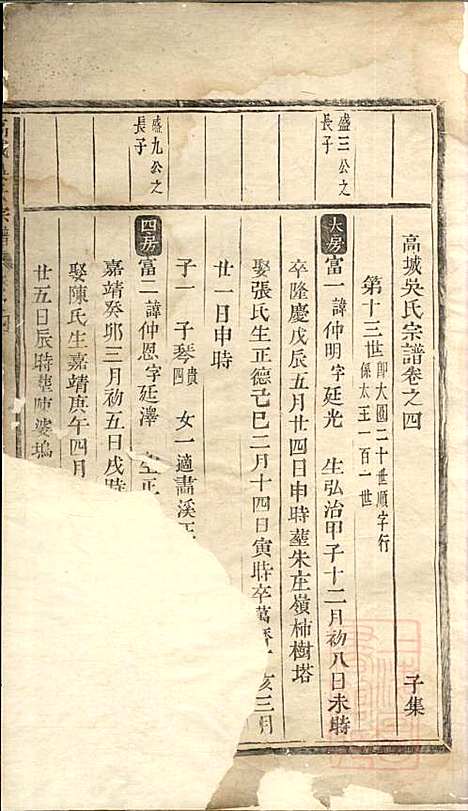 高城吳氏宗譜卷之四 子集
第十三世 即大園二十世順字行
係太王一百一世
盛三公之
長子
大房 富一諱仲明字延光 生弘治甲子十二月初八日未時
卒隆慶戊辰五月廿四日申時葬朱庄嶺柿樹塔
娶張氏生正德己巳二月十四日寅時卒萬曆 亥三月
廿一日申時
子一 子琴 貴四 女一適畫溪王
盛九公之
長子
四房 富二諱仲恩字延澤 生正
嘉靖癸卯三月初五日戌時
娶陳氏生嘉靖庚午四月
廿五日辰時葬陳婆塢